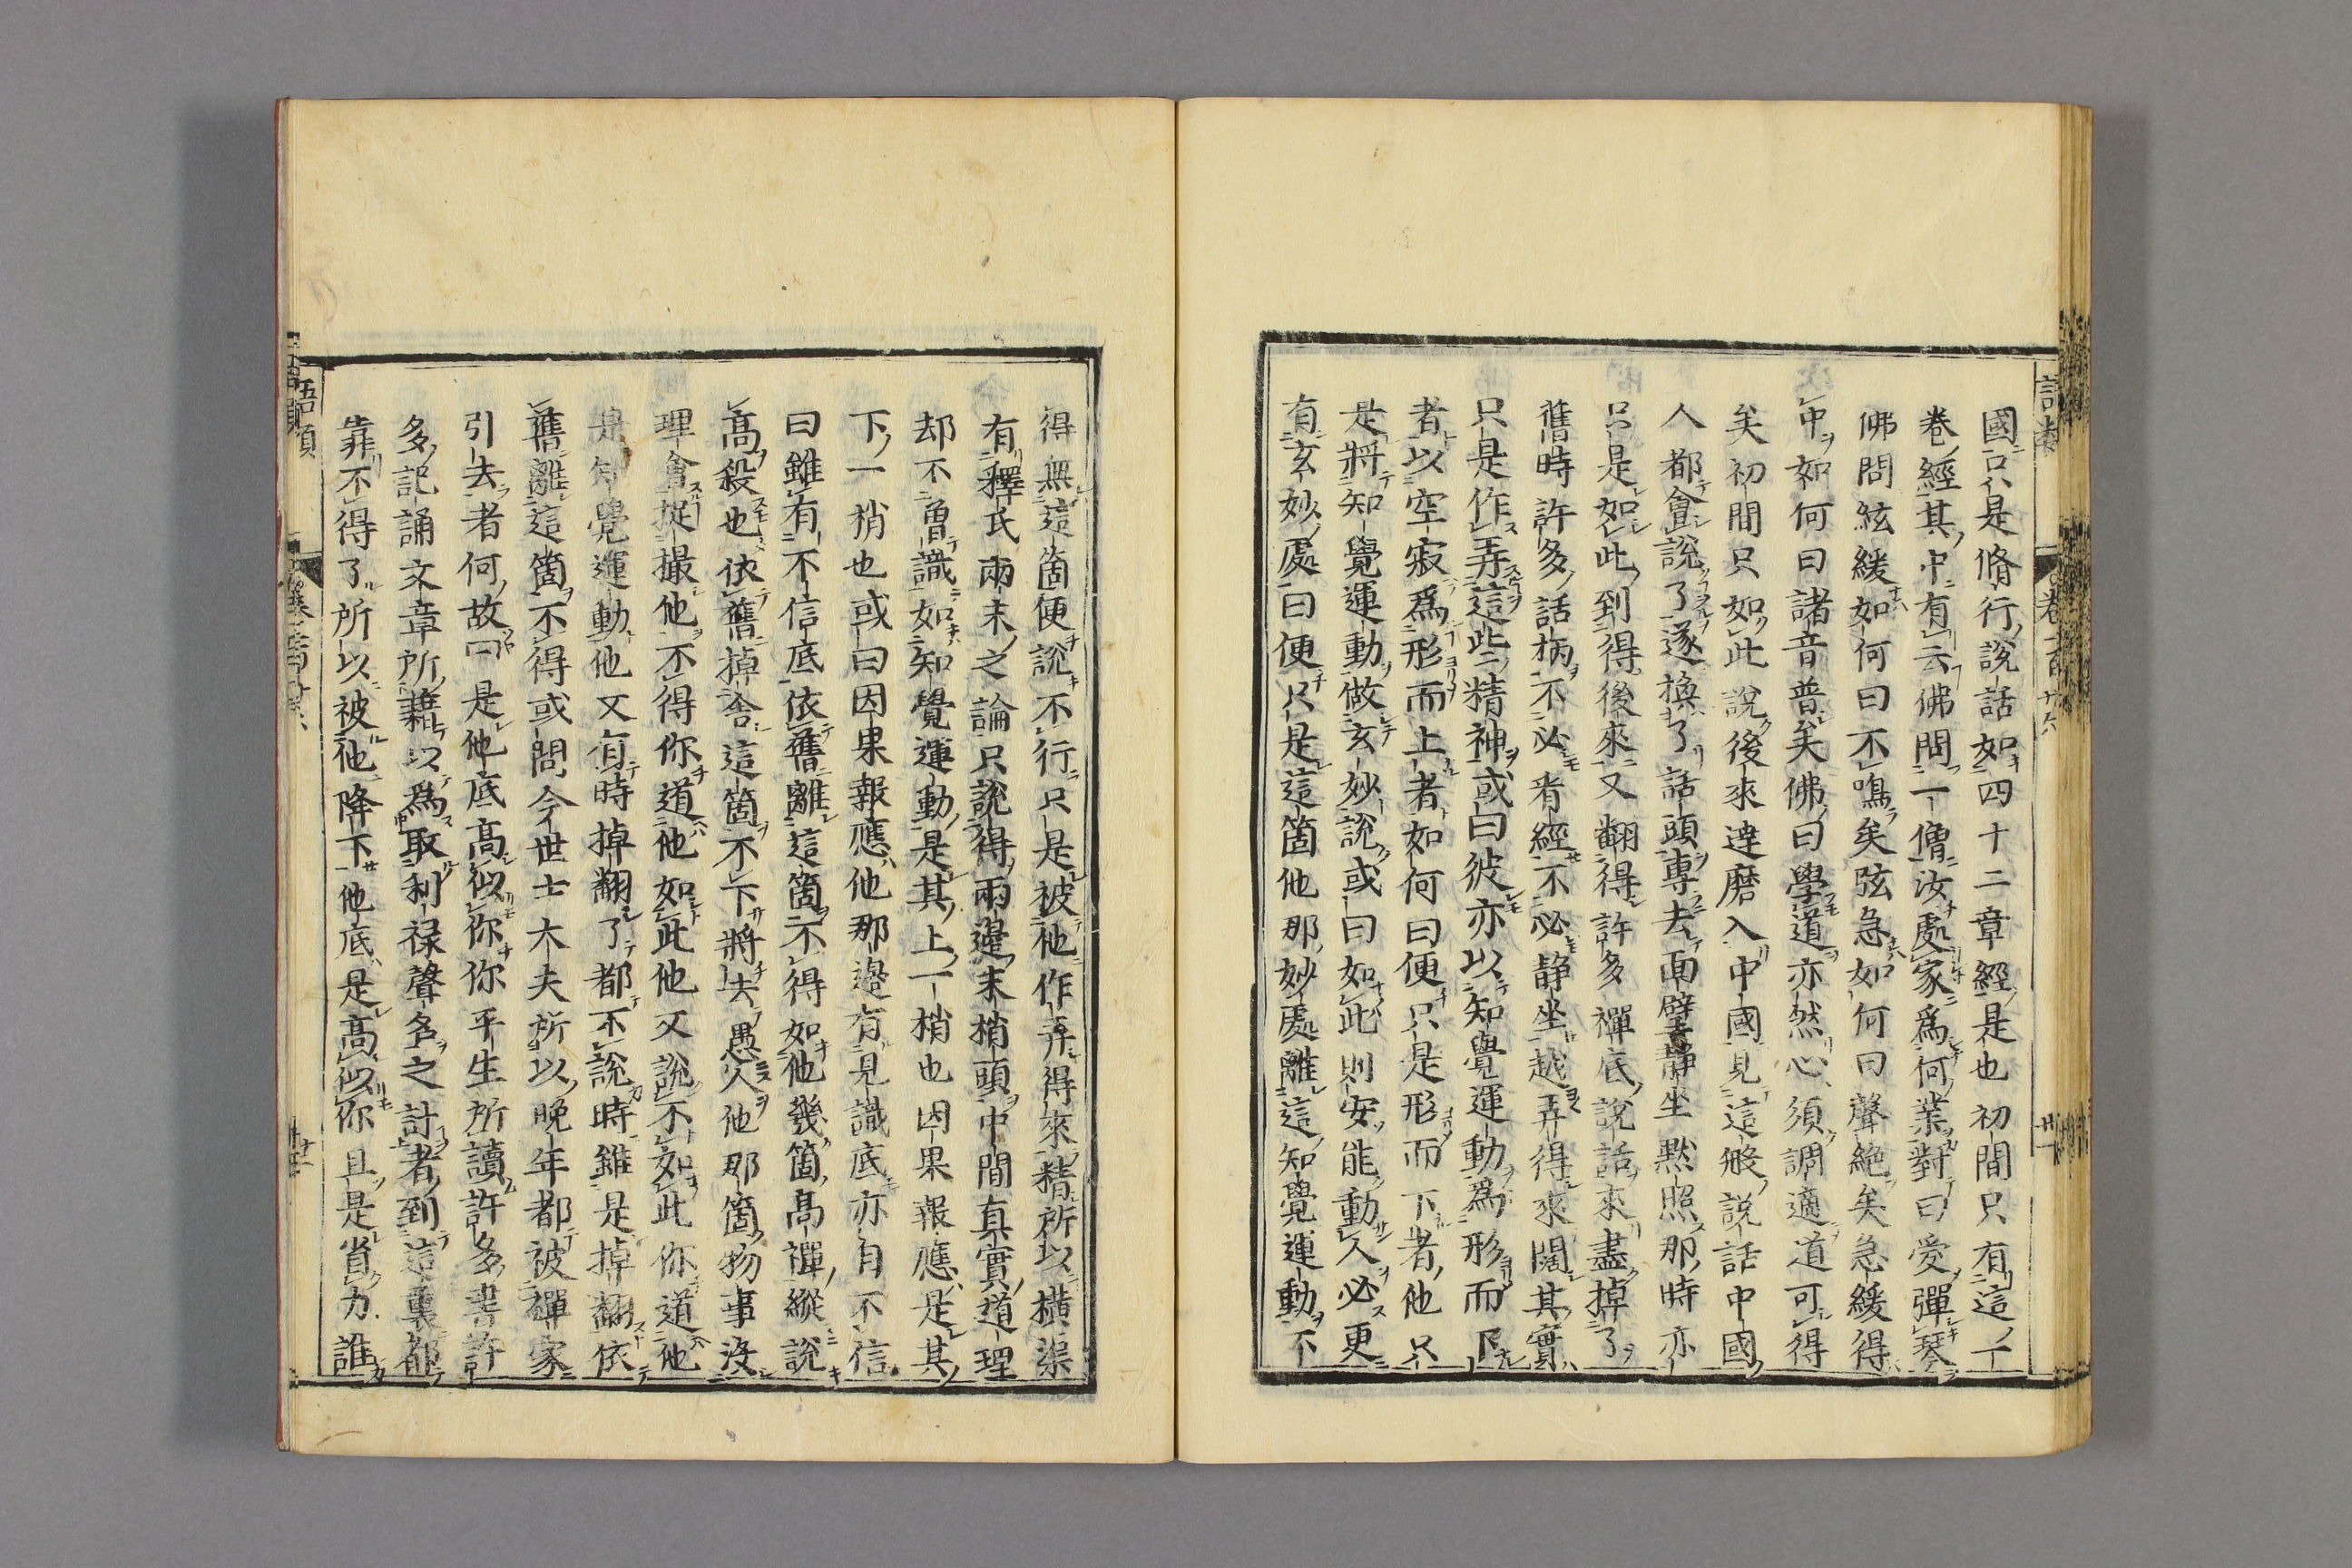 國只是脩行說話如四十二章經是也初間只有這一
卷經其中有云佛問一僧汝處家爲何業對曰愛彈琴
佛問絃緩如何曰不鳴矣弦急如何曰聲絶矣急緩得
中如何曰諸音普矣佛曰學道亦然心須調適道可得
矣初間只如此說後來達磨入中國見這般說話中國
人都會說了遂換了話頭專去面壁静坐默照那時亦
只是如此到得後來又翻得許多禪底說話來盡掉了
舊時許多話柄不必看經不必静坐越弄得來闊其實
只是作弄這些精神或曰彼亦以知覺運動爲形而下
者以空寂爲形而上者如何曰便只是形而下者他只
是將知覺運動做玄妙說或曰如此則安能動人必更
有玄妙處曰便只是這箇他那妙處離這知覺運動不
得無這箇便說不行只是被他作弄得來精所以横渠
有釋氏兩末之論只說得兩邊末梢頭中間真實道理
却不曾識如知覺運動是其上一梢也因果報應是其
下一梢也或曰因果報應他那邊有見識底亦自不信
曰雖有不信底依舊離這箇不得如他幾箇高禪縱說
高殺也依舊掉舍這箇不下將去愚人他那箇物事没
理會捉撮他不得你道他如此他又說不如此你道他
是知覺運動他又有時掉翻了都不說時雖是掉翻依
舊離這箇不得或問今世士大夫所以晩年都被禪家
引去者何故曰是他底高似你你平生所讀許多書許
多記誦文章所藉以爲取利禄聲名之計者到這裏都
靠不得了所以被他降下他底是高似你且是省力誰
語類